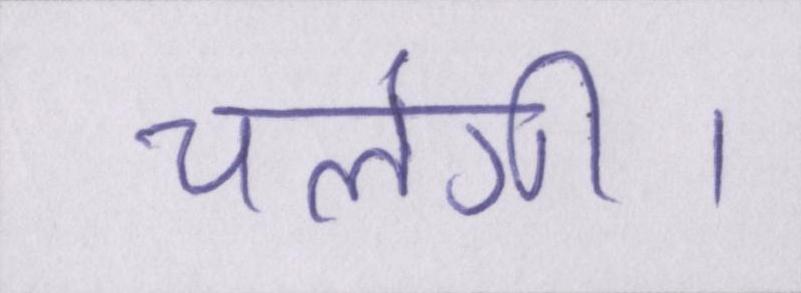 चलेगी।